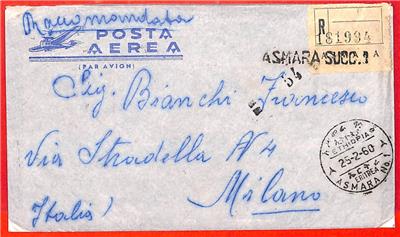 Raccomandata
POSTA
AEREA
(PAR AVION)
R
81994
ASMARA SUCC. 1
Sig. Bianchi Francesco
Via Stradella N 4
Milano
Italia
ETHIOPIA
25-2-60
ERITREA
ASMARA No 1